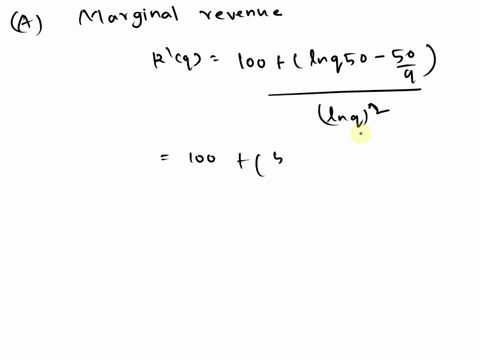 (A) Marginal revenue
R'(q) = 100 + (lnq50 - 50/q)
(lnq)^2
= 100 + ( 5